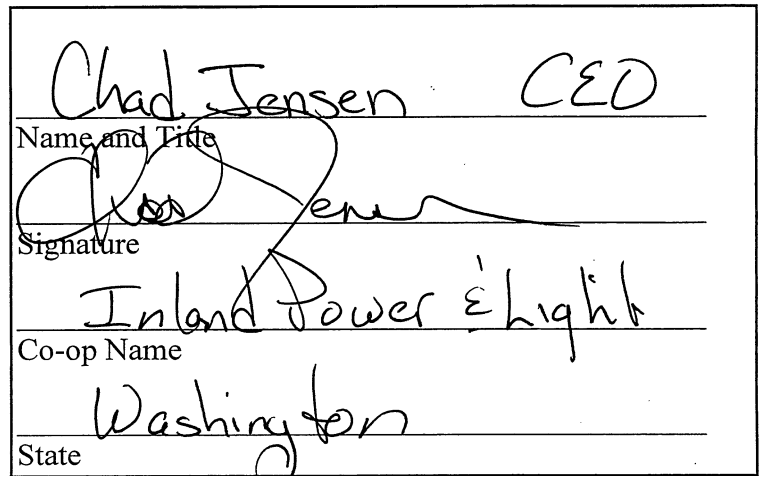 Chad Jensen CEO
Name and Title
Chad Jensen
Signature
Inland Power & Light
Co-op Name
Washington
State